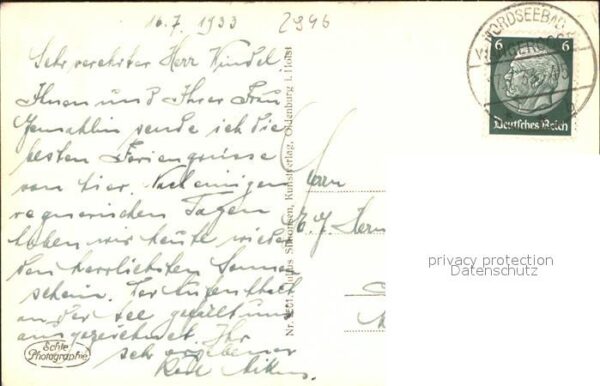 16.7.1933 2946
Sehr verehrter Herr Windel,
Ihnen und Ihrer Frau
Gemahlin sende ich die
besten Feriengrüsse
von hier. Nach einigen
regnerischen Tagen
haben wir heute wieder
den herrlichsten Sonnen
schein. Der Aufenthalt
an der See gefällt uns
ausgezeichnet. Ihr
sehr ergebener
Echte
Photographie
Julius Simonsen, Kunstverlag, Oldenburg i. Holst
Herrn
NORDSEEBAD
WANGEROOGE
6 6
Deutsches Reich
privacy protection
Datenschutz